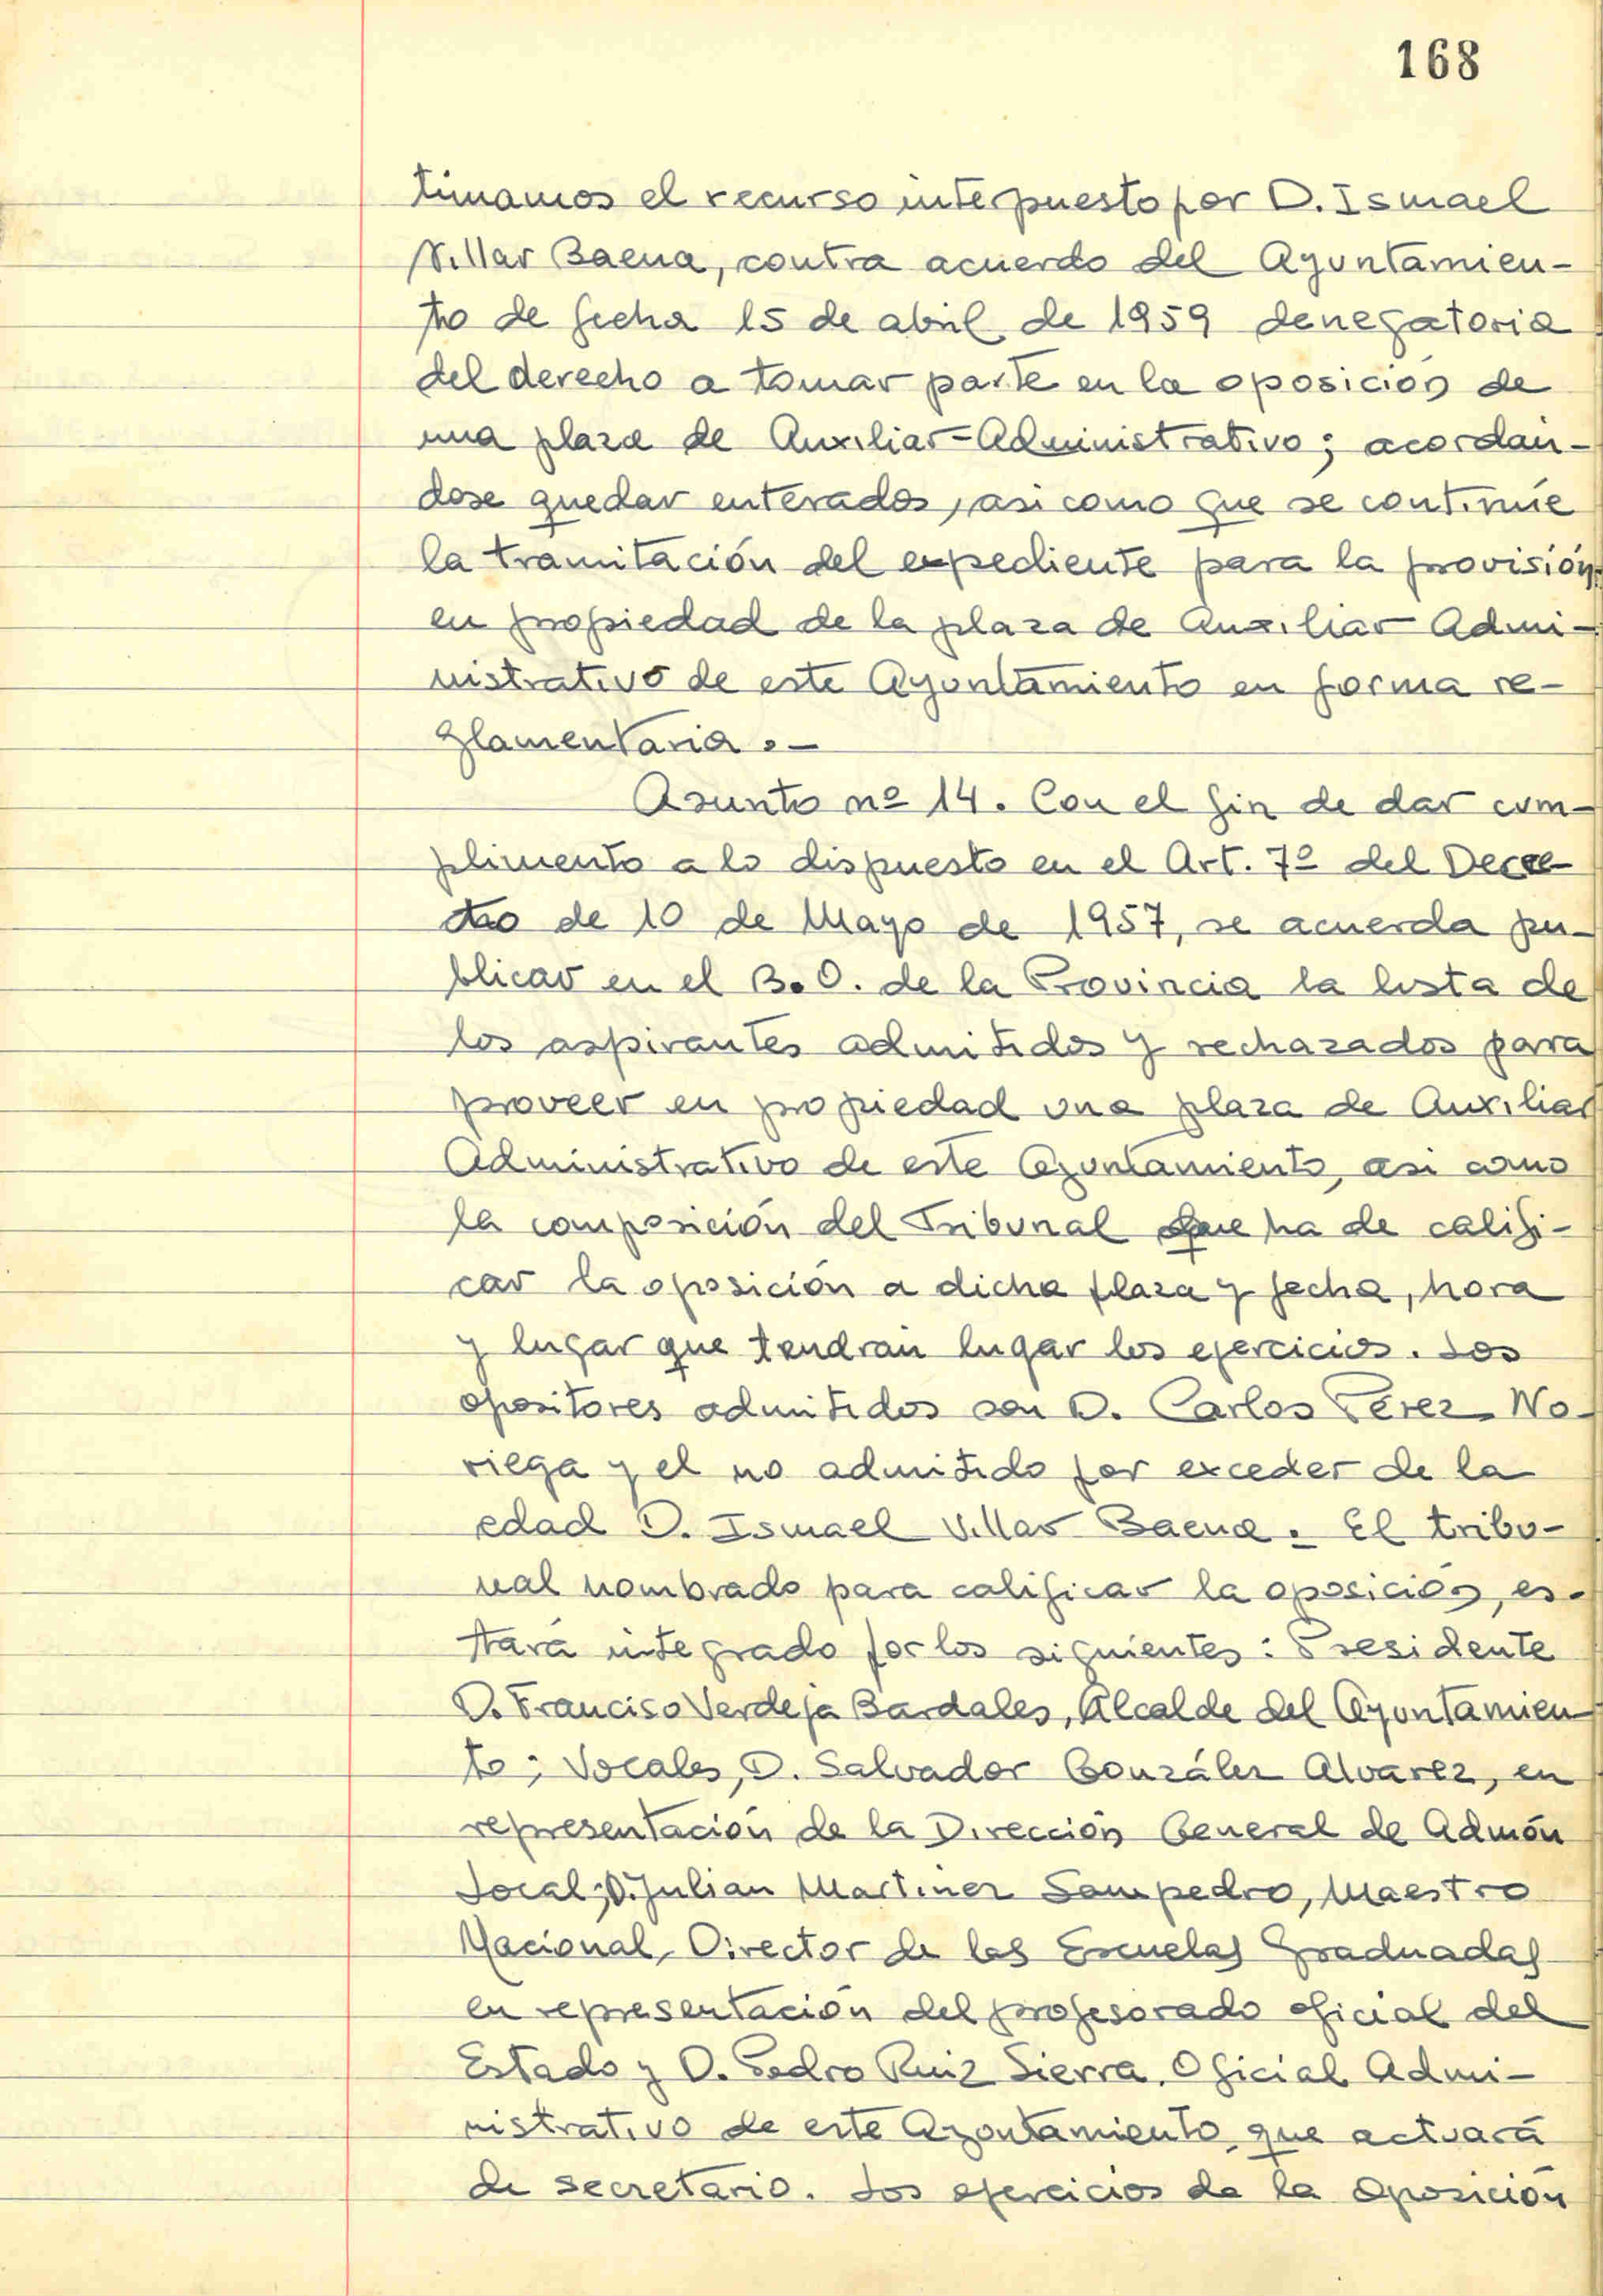 168
timamos el recurso interpuesto por D. Ismael
Villar Baena, contra acuerdo del Ayuntamien-
to de fecha 15 de abril de 1959 denegatoria
del derecho a tomar parte en la oposición de
una plaza de Auxiliar-Administrativo; acordan-
dose quedar enterados, asi como que se continúe
la tramitación del expediente para la provisión
en propiedad de la plaza de Auxiliar Admi-
nistrativo de este Ayuntamiento en forma re-
glamentaria.-
Asunto nº 14. Con el fin de dar cum-
plimento a lo dispuesto en el Art. 7º del Decre-
to de 10 de Mayo de 1957, se acuerda pu-
blicar en el B.O. de la Provincia la lista de
los aspirantes admitidos y rechazados para
proveer en propiedad una plaza de Auxiliar
Administrativo de este Ayuntamiento, asi como
la composición del Tribunal que ha de califi-
car la oposición a dicha plaza y fecha, hora
y lugar que tendran lugar los ejercicios. Los
opositores admitidos son D. Carlos Pérez No-
riega y el no admitido por exceder de la
edad D. Ismael Villar Baena. El tribu-
nal nombrado para calificar la oposición, es-
tará integrado por los siguientes: Presidente
D. Franciso Verdeja Bardales, Alcalde del Ayuntamien-
to; Vocales, D. Salvador González Alvarez, en
representación de la Dirección General de Admón
Local; D. Julian Martinez Sampedro, Maestro
Nacional, Director de las Escuelas Graduadas
en representación del profesorado oficial del
Estado y D. Pedro Ruiz Sierra, Oficial Admi-
nistrativo de este Ayontamiento, que actuará
de secretario. Los ejercicios de la oposición